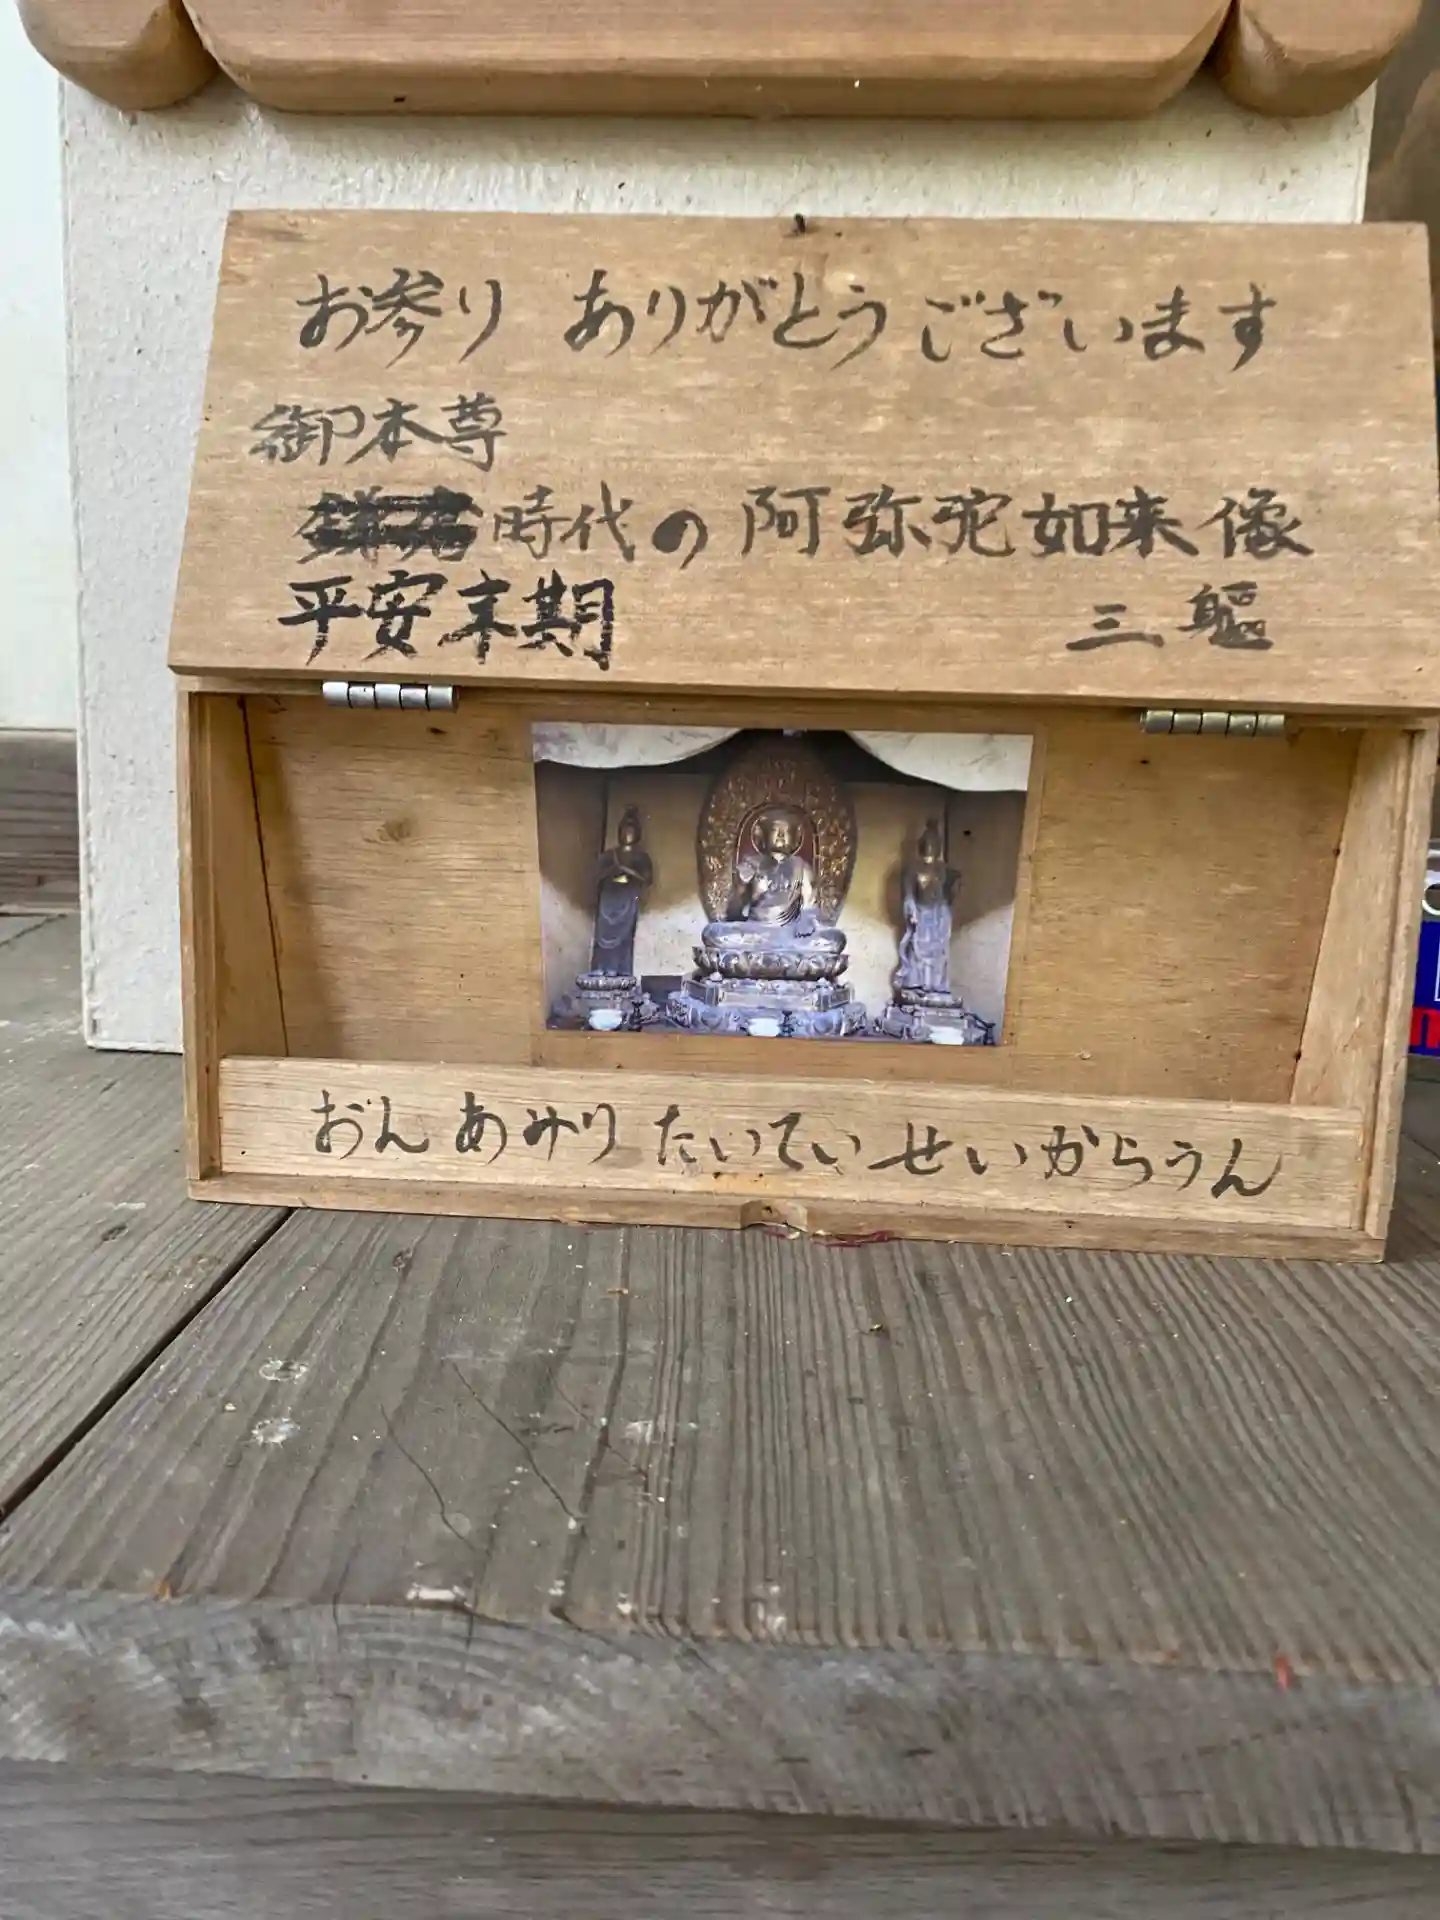 お参り ありがとうございます
御本尊
時代の 阿弥陀如来像
平安末期
三躯
おん あみり たいてい せいからうん